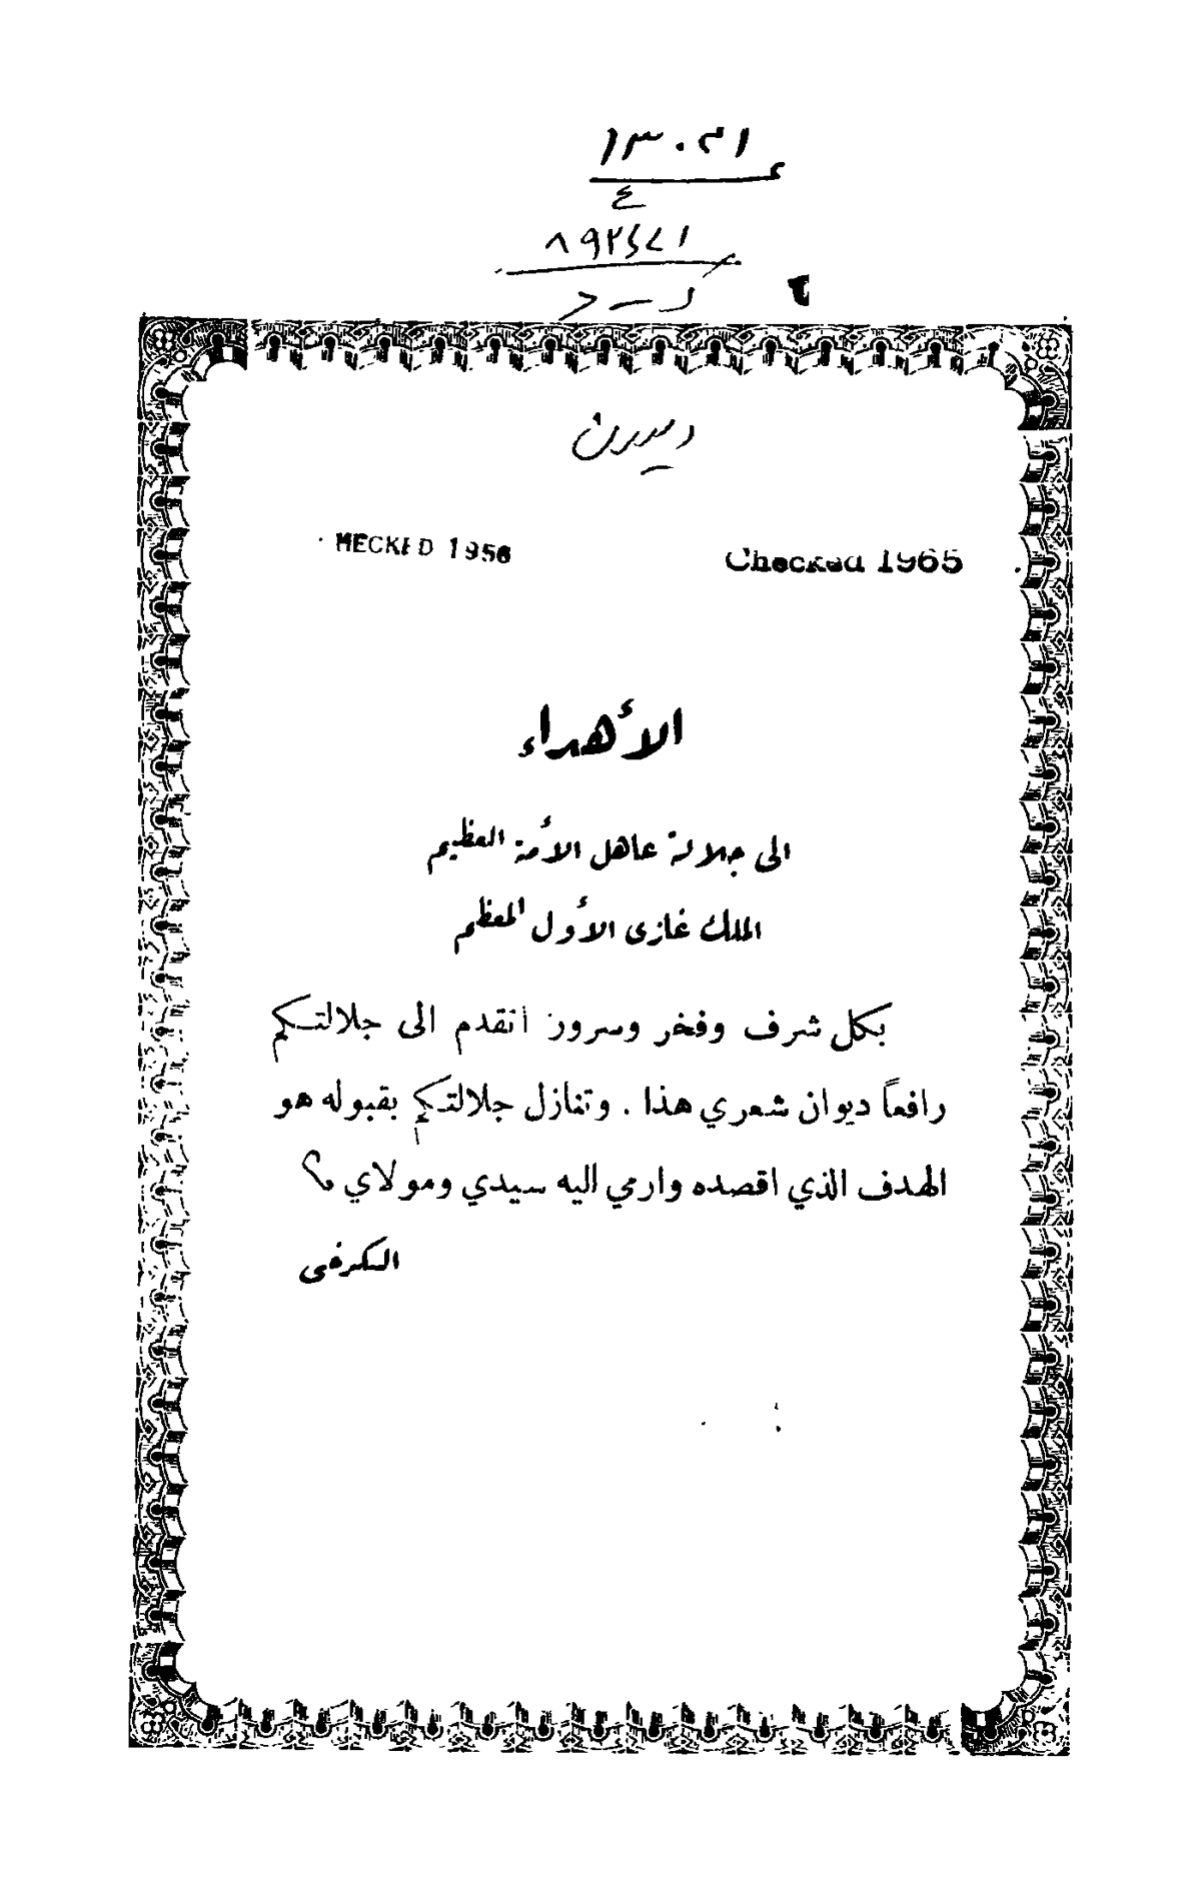 ١٣٠٢١
٤
٨٩٢٤٧١
ك — د
٢
HECKED 1956
Checked 1965
الأهداء
الى جلالة عاهل الأمة العظيم
الملك غازى الأول المعظم
بكل شرف وفخر وسرور أتقدم الى جلالتكم
رافعاً ديوان شعري هذا . وتنازل جلالتكم بقبوله هو
الهدف الذي اقصده وارمي اليه سيدي ومولاي
الكرفى